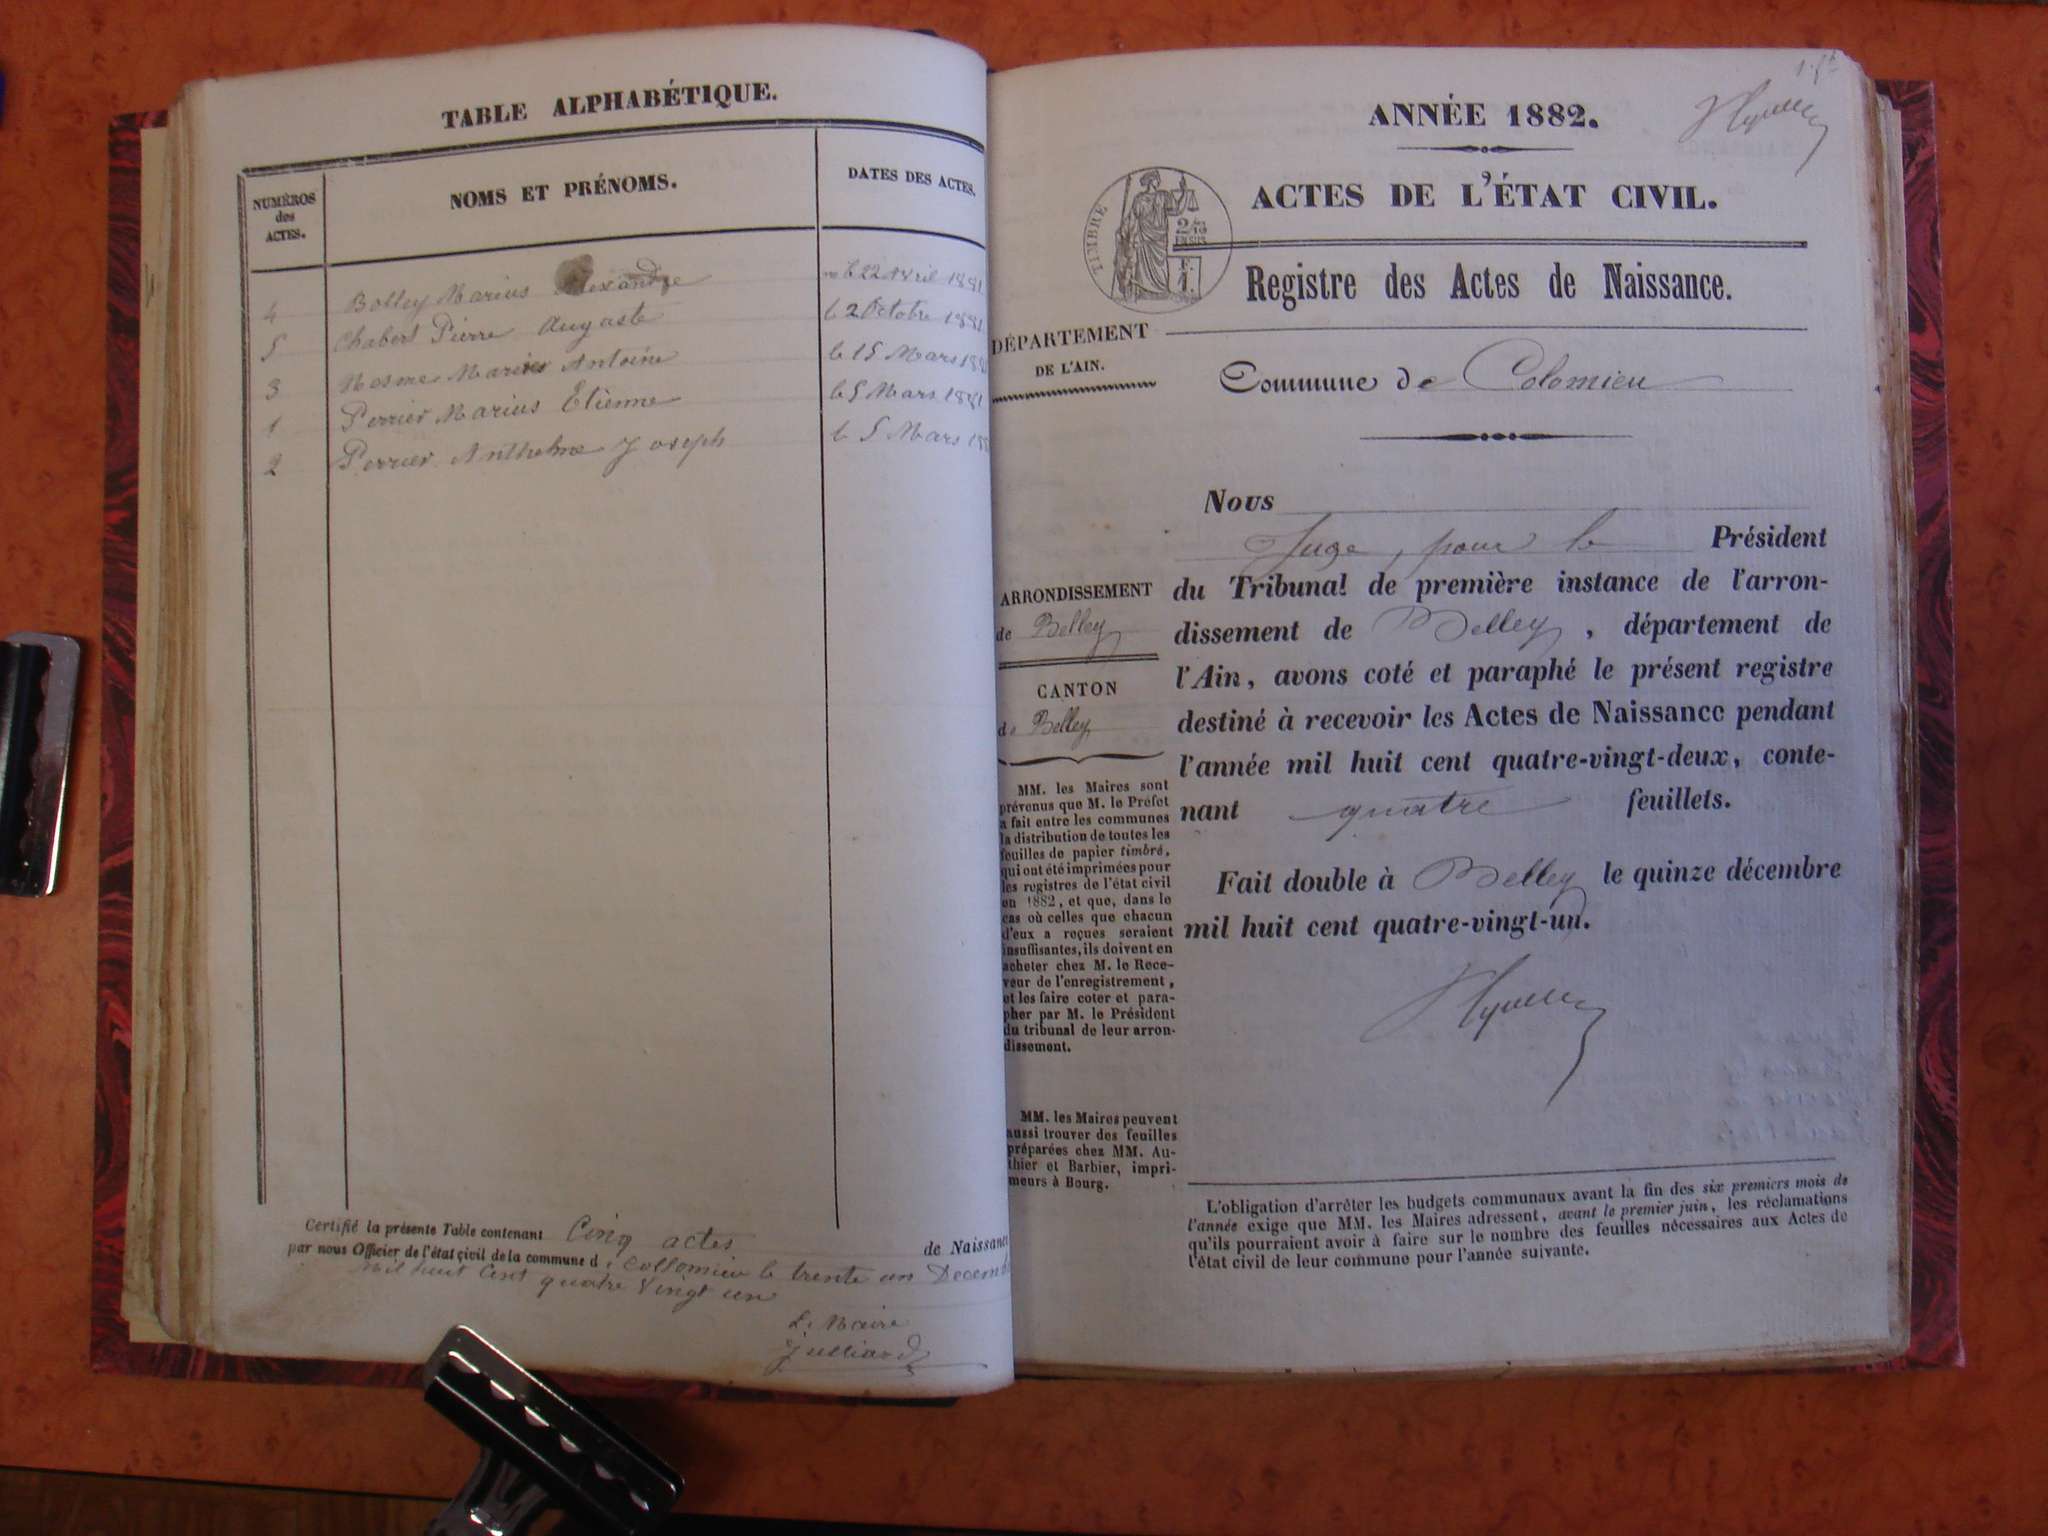 TABLE ALPHABÉTIQUE.
NUMÉROS des ACTES.
NOMS ET PRÉNOMS.
DATES DES ACTES.
4 Bolley Marius Alexandre le 22 Avril 1881
5 Chabert Pierre Auguste le 2 Octobre 1881
3 Mesme Marius Antoine le 15 Mars 188
1 Perrier Marius Etienne le 5 Mars 1881
2 Perrier Anthelme Joseph le 5 Mars 188
Certifié la présente Table contenant Cinq actes de Naissance
par nous Officier de l'état civil de la commune d Collomieu le trente un Decemb
mil huit Cent quatre Vingt un
Le Maire
Julliard
ANNÉE 1882.
ACTES DE L'ÉTAT CIVIL.
TIMBRE
Registre des Actes de Naissance.
DÉPARTEMENT
DE L'AIN.
Commune de Colomieu
Nous
Juge, pour le Président
du Tribunal de première instance de l'arron-
dissement de Belley, département de
l'Ain, avons coté et paraphé le présent registre
destiné à recevoir les Actes de Naissance pendant
l'année mil huit cent quatre-vingt-deux, conte-
nant quatre feuillets.
Fait double à Belley le quinze décembre
mil huit cent quatre-vingt-un.
ARRONDISSEMENT
de Belley
CANTON
de Belley
MM. les Maires sont
prévenus que M. le Préfet
a fait entre les communes
la distribution de toutes les
feuilles de papier timbré,
qui ont été imprimées pour
les registres de l'état civil
en 1882, et que, dans le
cas où celles que chacun
d'eux a reçues seraient
insuffisantes, ils doivent en
acheter chez M. le Rece-
veur de l'enregistrement,
et les faire coter et para-
pher par M. le Président
du tribunal de leur arron-
dissement.
MM. les Maires peuvent
aussi trouver des feuilles
préparées chez MM. Au-
thier et Barbier, impri-
meurs à Bourg.
L'obligation d'arrêter les budgets communaux avant la fin des six premiers mois de
l'année exige que MM. les Maires adressent, avant le premier juin, les réclamations
qu'ils pourraient avoir à faire sur le nombre des feuilles nécessaires aux Actes de
l'état civil de leur commune pour l'année suivante.